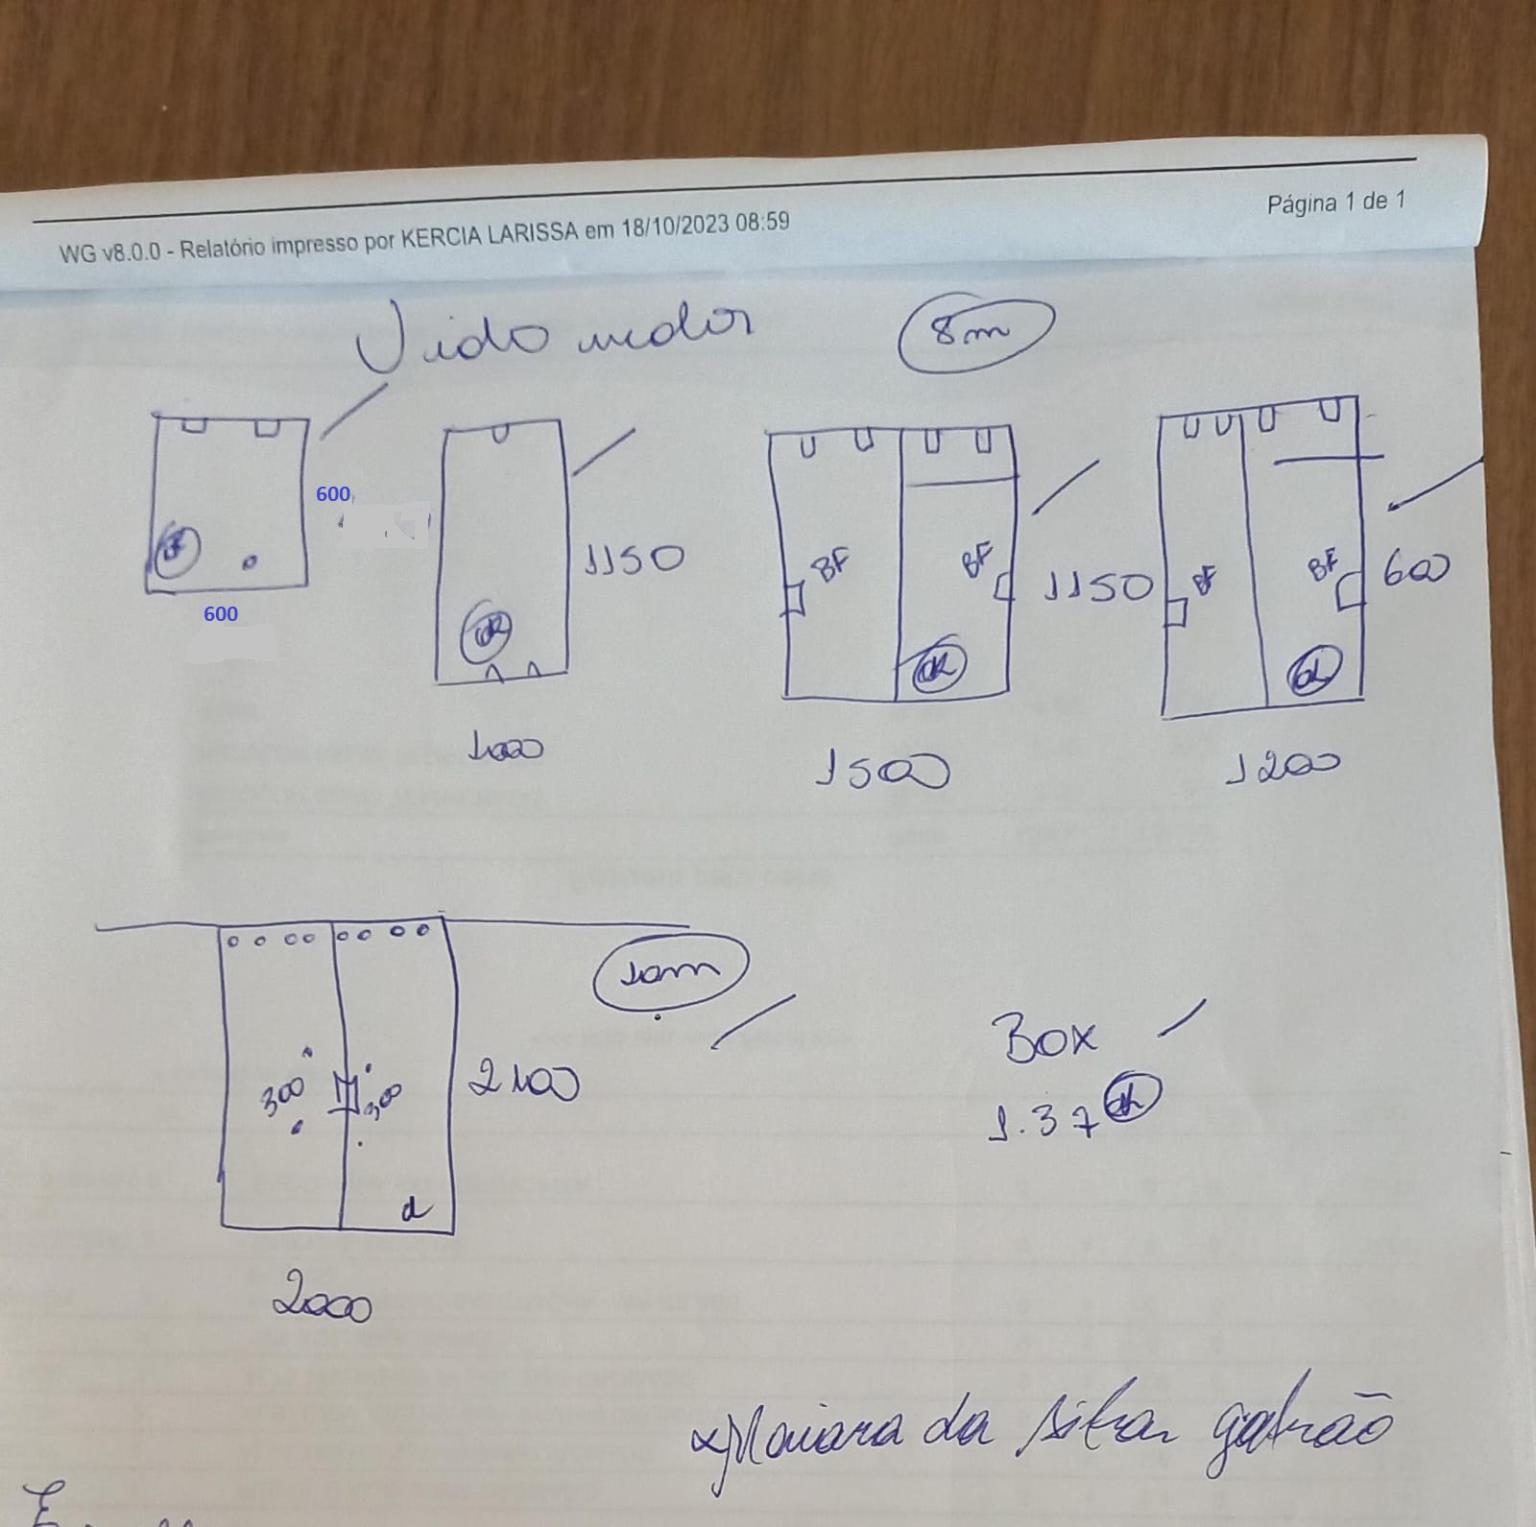 WG v8.0.0 - Relatório impresso por KERCIA LARISSA em 18/10/2023 08:59
Página 1 de 1
8m
600
600
1150
1000
BF
BF
OK
1150
1500
BF
BF
600
1200
10m
300
300
2100
2000
Box
1.37
Maiara da silva galvão